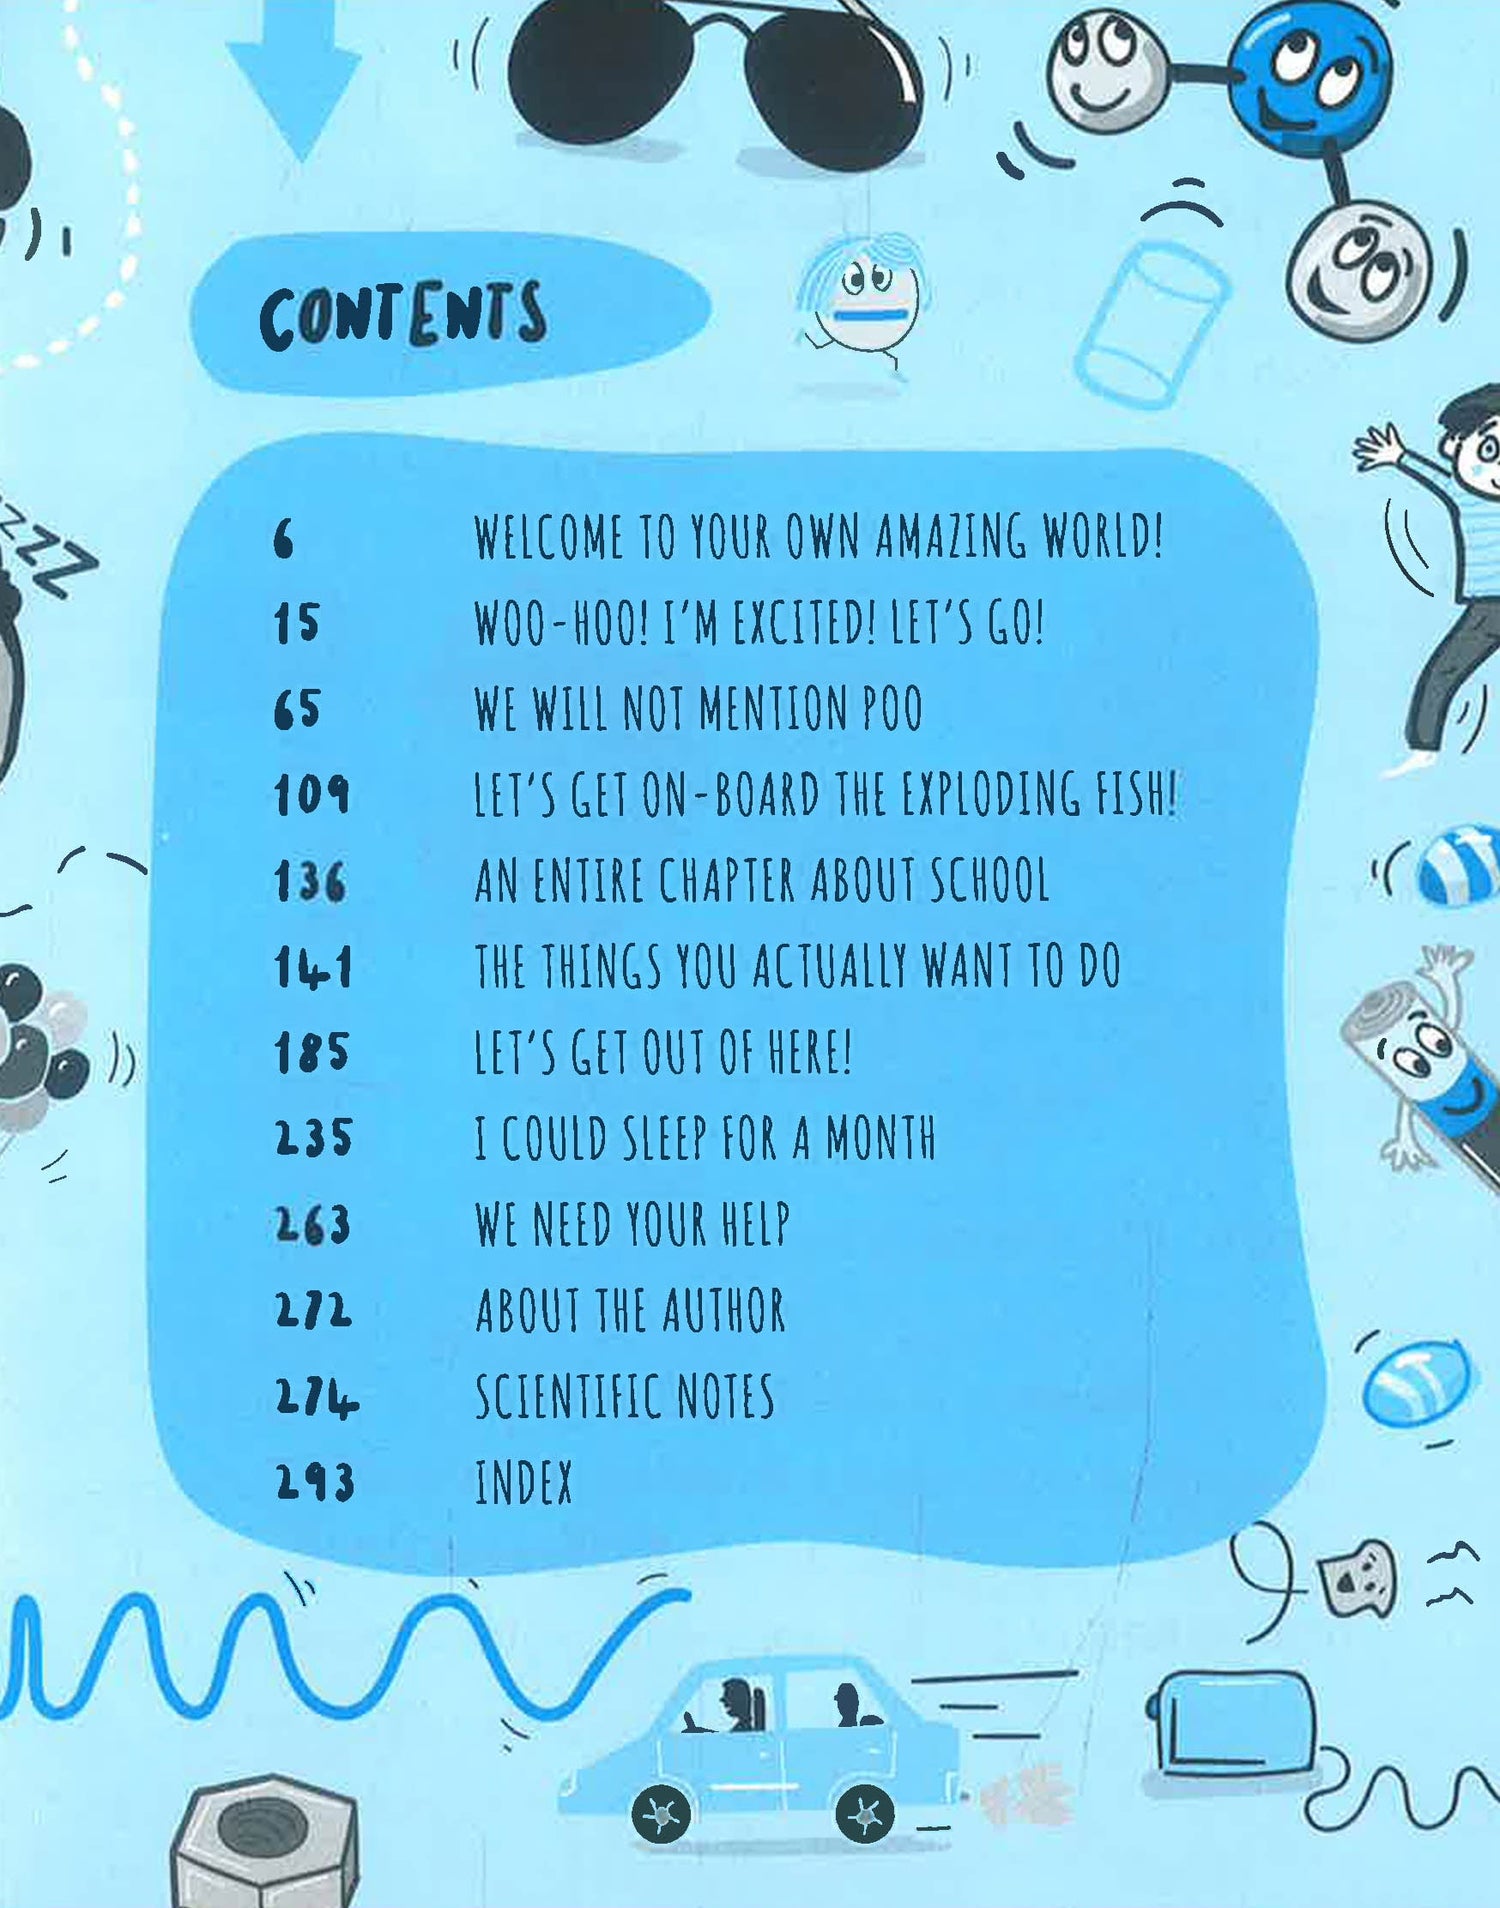 CONTENTS
6 WELCOME TO YOUR OWN AMAZING WORLD!
15 WOO-HOO! I'M EXCITED! LET'S GO!
65 WE WILL NOT MENTION POO
109 LET'S GET ON-BOARD THE EXPLODING FISH!
136 AN ENTIRE CHAPTER ABOUT SCHOOL
141 THE THINGS YOU ACTUALLY WANT TO DO
185 LET'S GET OUT OF HERE!
235 I COULD SLEEP FOR A MONTH
263 WE NEED YOUR HELP
272 ABOUT THE AUTHOR
274 SCIENTIFIC NOTES
293 INDEX
ZZZZ